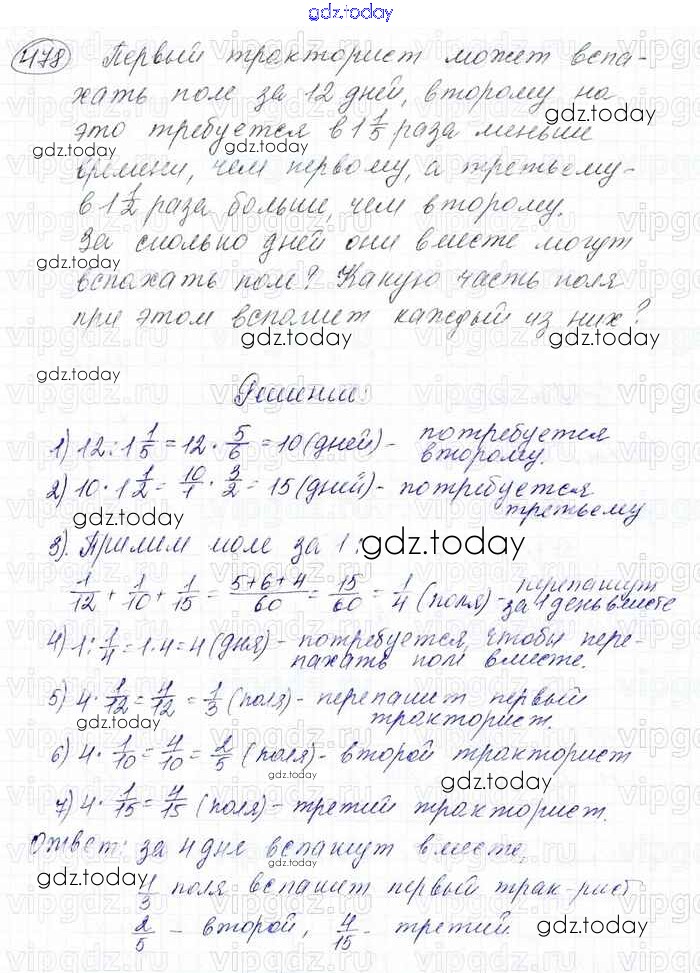 gdz.today
478 Первый тракторист может вспа-
хать поле за 12 дней, второму на
это требуется в 1 1/5 раза меньше
gdz.today gdz.today
времени, чем первому, а третьему -
в 1 1/2 раза больше, чем второму.
За сколько дней они вместе могут
gdz.today gdz.today
вспахать поле? Какую часть поля
при этом вспашет каждый из них?
gdz.today gdz.today
Решение:
1) 12 : 1 1/5 = 12 · 5/6 = 10 (дней) - потребуется
второму.
2) 10 · 1 1/2 = 10/1 · 3/2 = 15 (дней) - потребуется
gdz.today третьему
3). Примем поле за 1: gdz.today
1/12 + 1/10 + 1/15 = 5+6+4/60 = 15/60 = 1/4 (поля) - перепашут
gdz.today за 1 день вместе
4) 1 : 1/4 = 1 · 4 = 4 (дня) - потребуется, чтобы пере-
пахать поле вместе.
5) 4 · 1/12 = 4/12 = 1/3 (поля) - перепашет первый
тракторист.
6) 4 · 1/10 = 4/10 = 2/5 (поля) - второй тракторист
gdz.today gdz.today
7) 4 · 1/15 = 4/15 (поля) - третий тракторист.
Ответ: за 4 дне вспашут вместе,
gdz.today
1/3 поля вспашет первый трак-рист
2/5 - второй, 4/15 - третий.
gdz.today